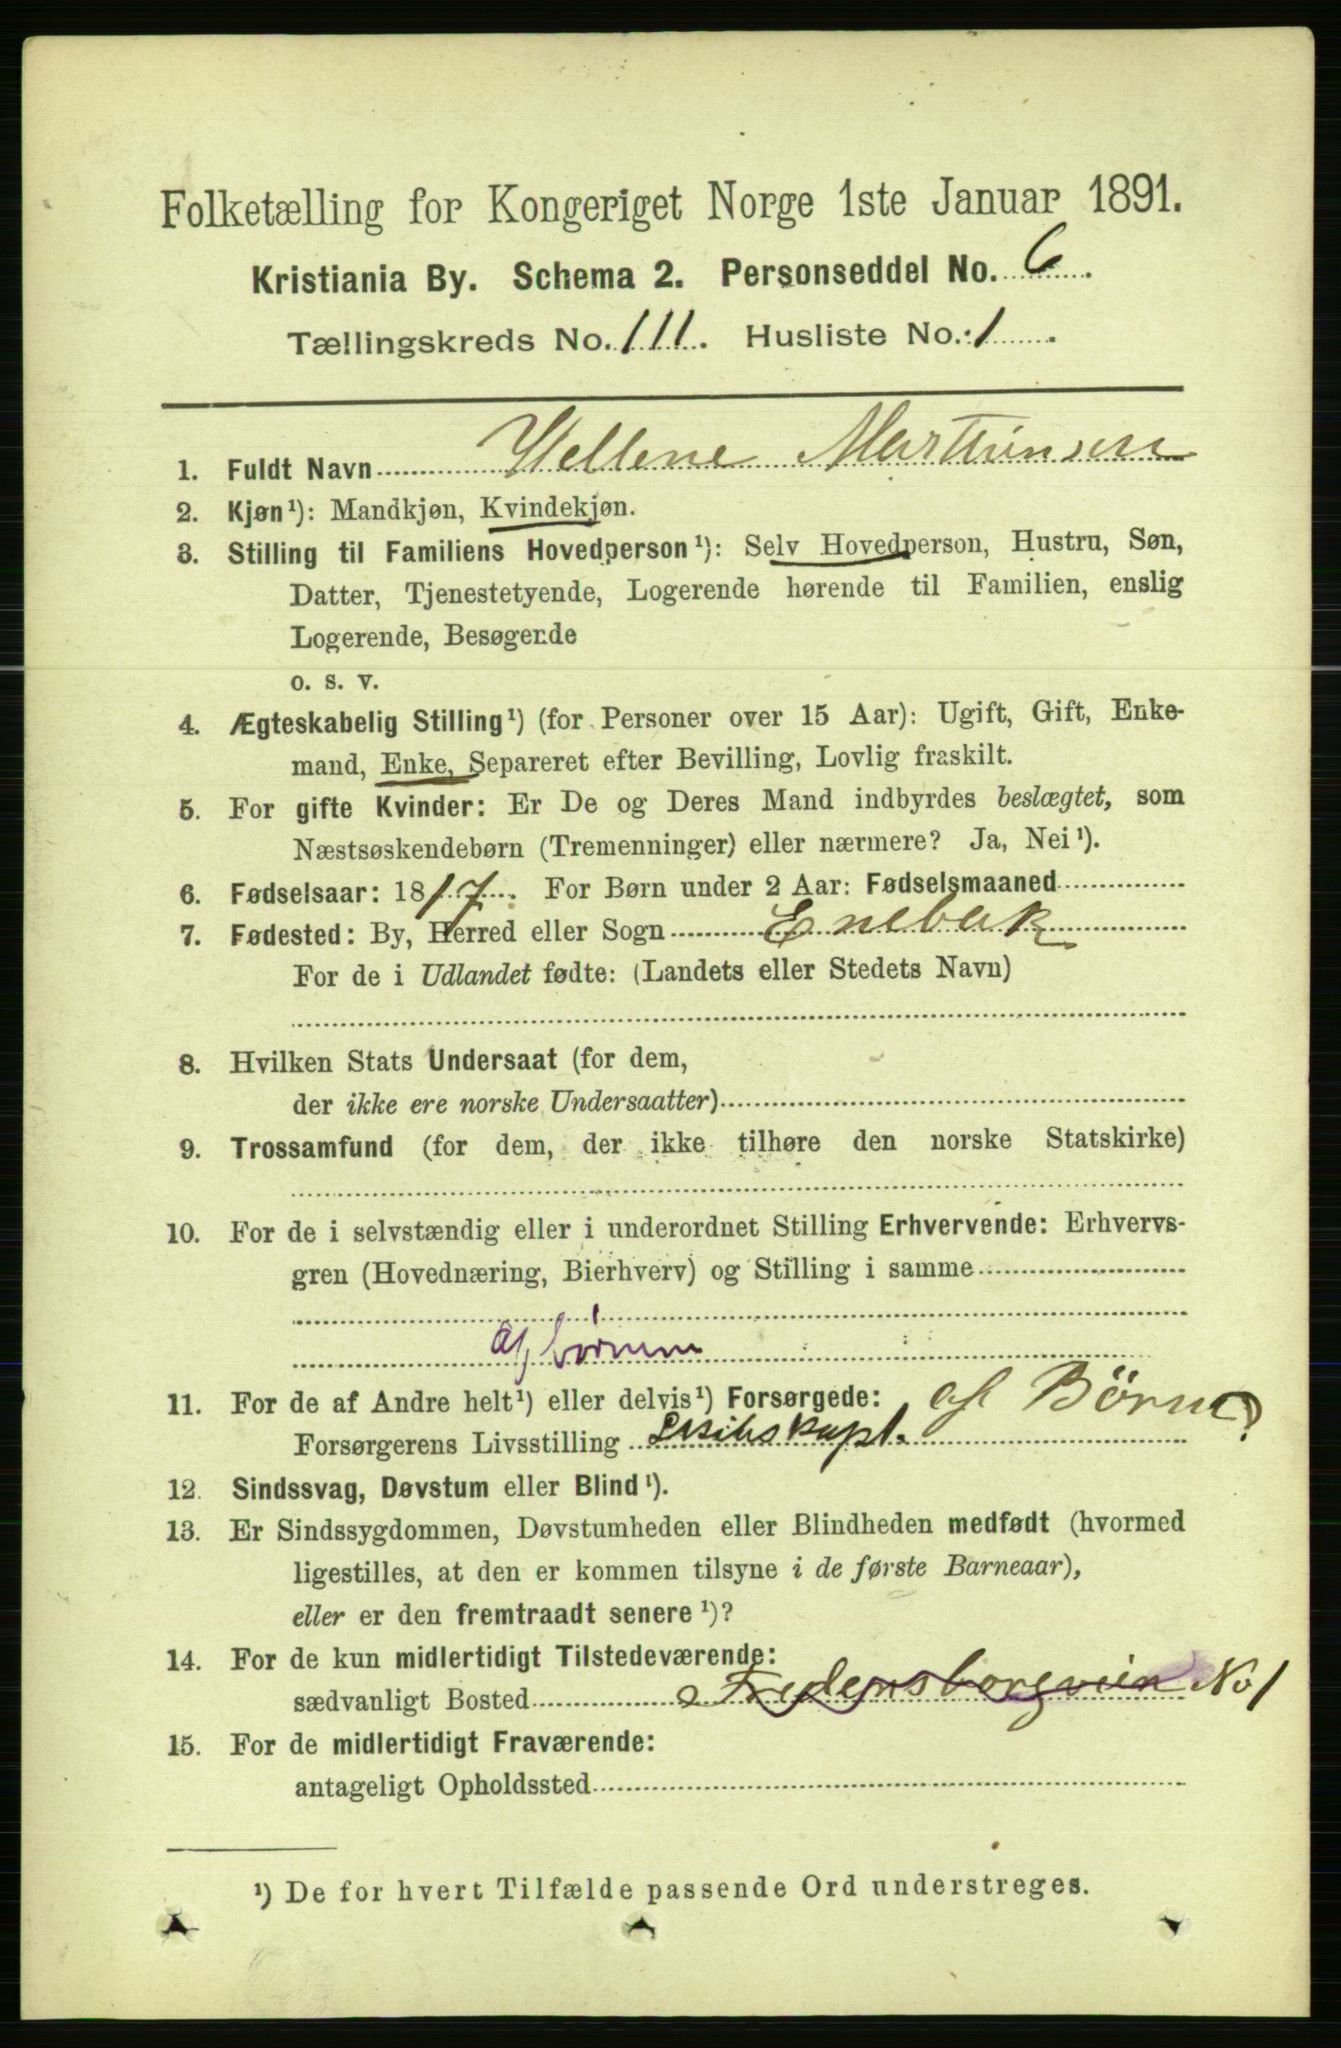 Folketælling for Kongeriget Norge 1ste Januar 1891.
Kristiania By. Schema 2. Personseddel No. 6.
Tællingskreds No. 111. Husliste No. 1.
1. Fuldt Navn Hellene Marthinsen
2. Kjøn¹): Mandkjøn, Kvindekjøn.
3. Stilling til Familiens Hovedperson¹): Selv Hovedperson, Hustru, Søn,
Datter, Tjenestetyende, Logerende hørende til Familien, enslig
Logerende, Besøgende
o. s. v.
4. Ægteskabelig Stilling¹) (for Personer over 15 Aar): Ugift, Gift, Enke-
mand, Enke, Separeret efter Bevilling, Lovlig fraskilt.
5. For gifte Kvinder: Er De og Deres Mand indbyrdes beslægtet, som
Næstsøskendebørn (Tremenninger) eller nærmere? Ja, Nei¹).
6. Fødselsaar: 1817. For Børn under 2 Aar: Fødselsmaaned
7. Fødested: By, Herred eller Sogn Enebak
For de i Udlandet fødte: (Landets eller Stedets Navn)
8. Hvilken Stats Undersaat (for dem,
der ikke ere norske Undersaatter)
9. Trossamfund (for dem, der ikke tilhøre den norske Statskirke)
10. For de i selvstændig eller i underordnet Stilling Erhvervende: Erhvervs-
gren (Hovednæring, Bierhverv) og Stilling i samme
af
11. For de af Andre helt¹) eller delvis¹) Forsørgede: af Børn
Forsørgerens Livsstilling
12. Sindssvag, Døvstum eller Blind¹).
13. Er Sindssygdommen, Døvstumheden eller Blindheden medfødt (hvormed
ligestilles, at den er kommen tilsyne i de første Barneaar),
eller er den fremtraadt senere¹)?
14. For de kun midlertidigt Tilstedeværende:
sædvanligt Bosted Fredensborgveien No 1
15. For de midlertidigt Fraværende:
antageligt Opholdssted
¹) De for hvert Tilfælde passende Ord understreges.